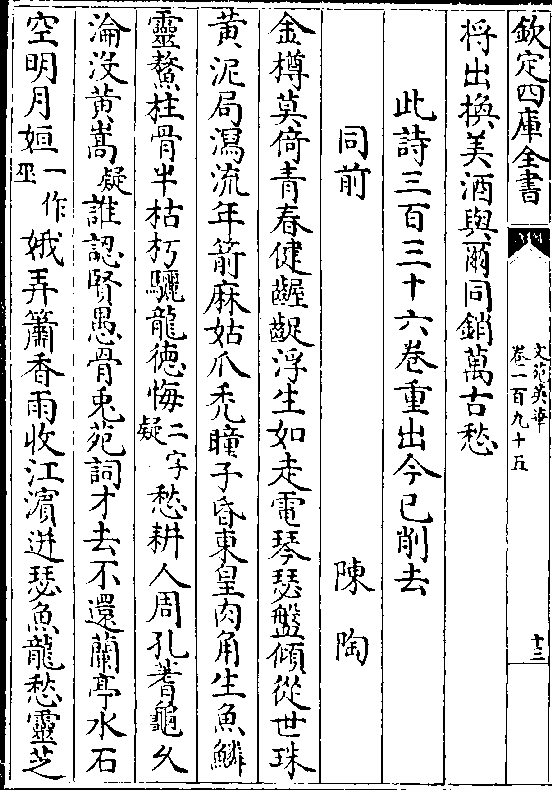 欽定四庫全書
文苑英華
卷二百九十五
十三
將出換美酒與爾同銷萬古愁
此詩三百三十六卷重出今已削去
同前 陳陶
金樽莫倚青春健齷齪浮生如走電琴瑟盤傾從世珠
黃泥局瀉流年箭麻姑爪禿瞳子昏東皇肉角生魚鱗
靈鰲柱骨半枯朽驪龍德悔二字疑愁耕人周孔蓍龜久
淪沒黃嵩疑誰認賢愚骨兎苑詞才去不還蘭亭水石
空明月姮一作巫娥弄簫香雨收江濵迸瑟魚龍愁靈芝